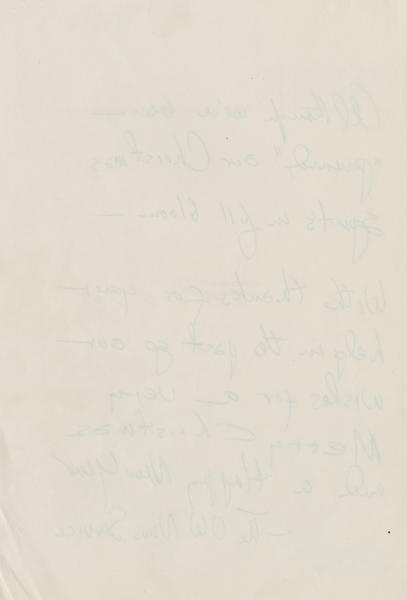 Although we've been —
"pruned" our Christmas
spirit's in full bloom —
With thanks for your —
help in the past go our —
wishes for a very
Merry Christmas
and a Happy New Year
— The Old News Service